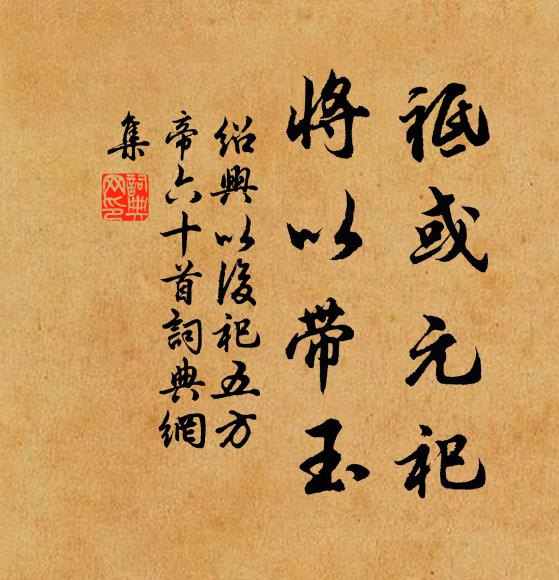 祗或元祀
將以帶玉
紹興以後祀五方
帝六十首詞典網
集
詞典
网印